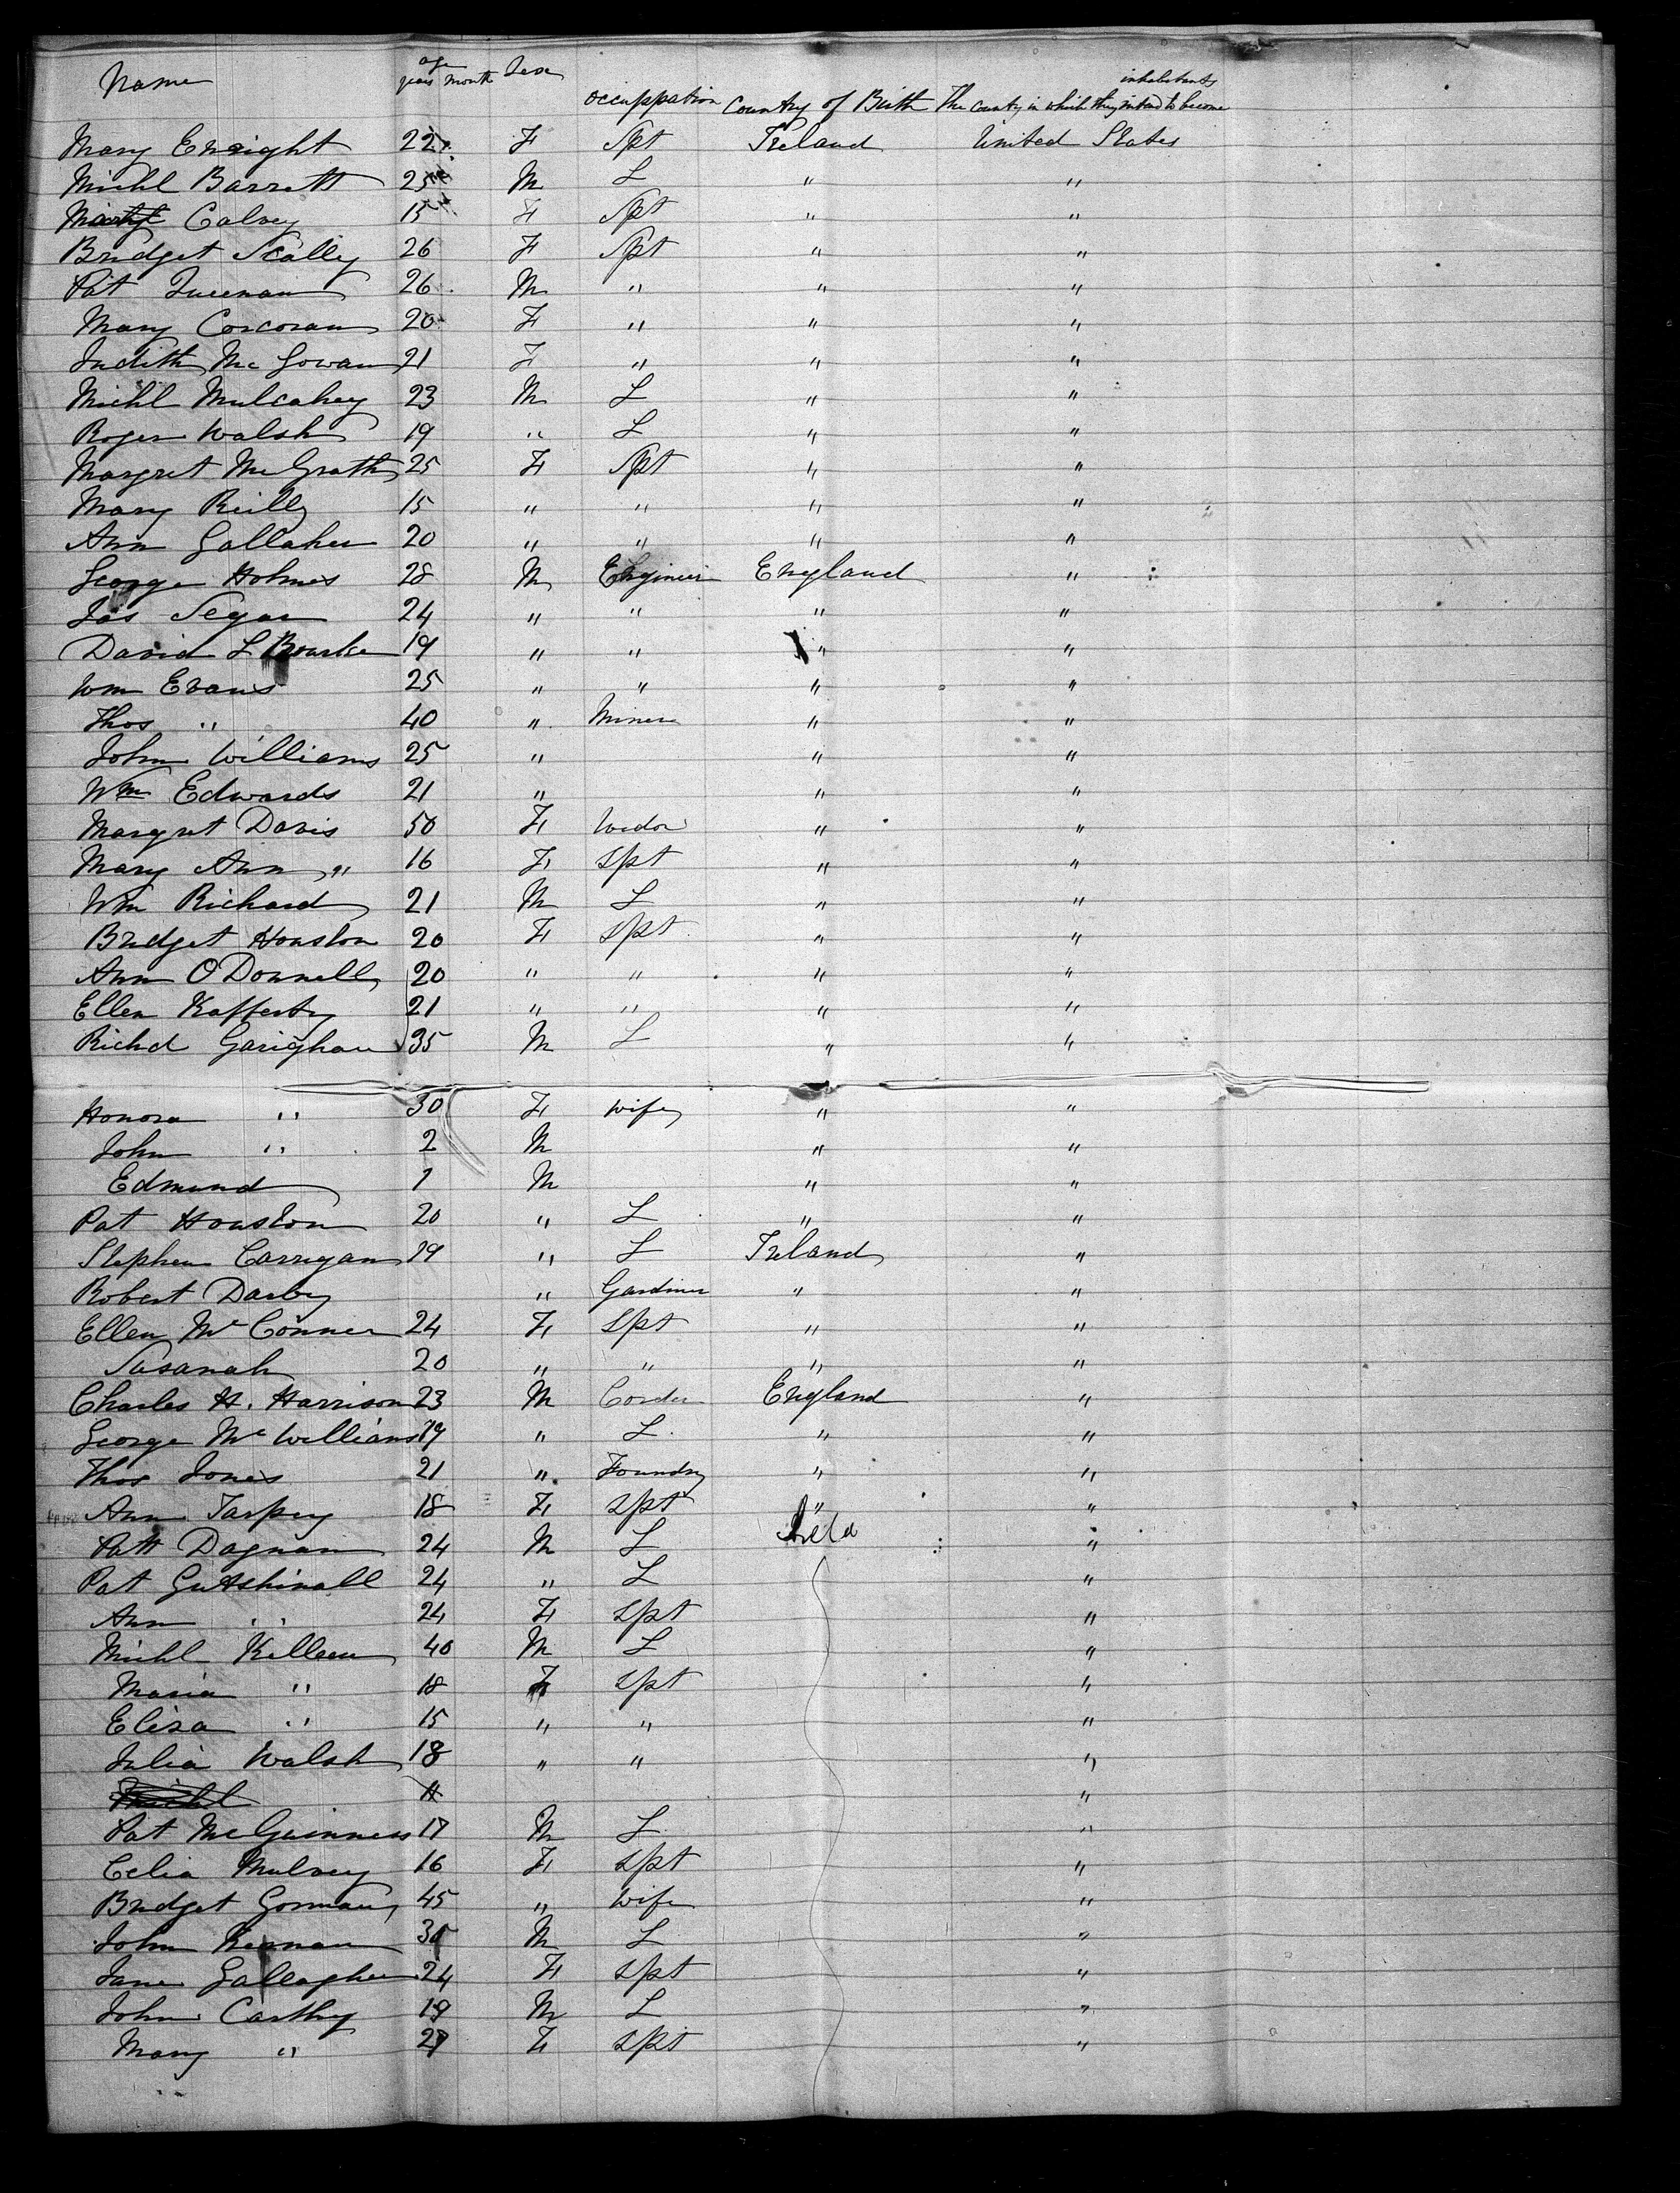 Name age years month Sex occuppation Country of Birth The county in which they intend to become inhabitants
Mary Enright 22 F Spt Ireland United States
Michl Barrett 25 M L " "
Mary Calvey 15 F Spt " "
Bridget Scally 26 F Spt " "
Pat 26 M " " "
Mary Corcoran 20 F " " "
Judith McGowan 21 F " " "
Michl Mulcahey 23 M L " "
Roger Walsh 19 " L " "
Margret McGrath 25 F Spt " "
Mary Reilly 15 " " " "
Ann Gallaher 20 " " " "
George Holmes 28 M Engineer England "
Jas Segar 24 " " " "
David L Bourke 19 " " " "
Wm Evans 25 " " " "
Thos " 40 " Miner " "
John Williams 25 " " "
Wm Edwards 21 " " "
Margret Davis 50 F Widow " "
Mary Ann " 16 F spt " "
Wm Richard 21 M L " "
Bridget Houston 20 F spt " "
Ann O Donnell 20 " " " "
Ellen Rafferty 21 " " " "
Richd Garighan 35 M L " "
Honora " 30 F wife " "
John " 2 M " "
Edmund 1 M " "
Pat Houston 20 " L " "
Stephen Carrigan 19 " L Ireland "
Robert Darby " Gardiner " "
Ellen Mc Conner 24 F Spt " "
Susanah 20 " " " "
Charles H. Harrison 23 M Corder England "
George Mc Williams 19 " L " "
Thos Jones 21 " Foundry " "
Ann Tarpey 18 F spt " "
Patt Dagnan 24 M L Ireld "
Pat 24 " L "
Ann " 24 F spt "
Michl Killeen 40 M L "
Maria " 18 F spt "
Eliza " 15 " " "
Julia Walsh 18 " " "
Michl 11 "
Pat McGuinness 17 M L "
Celia Mulvey 16 F spt "
Bridget Gorman 45 " wife "
John Kernan 30 M L "
Jane Gallagher 24 F spt "
John Carthy 19 M L "
Mary " 27 F spt "